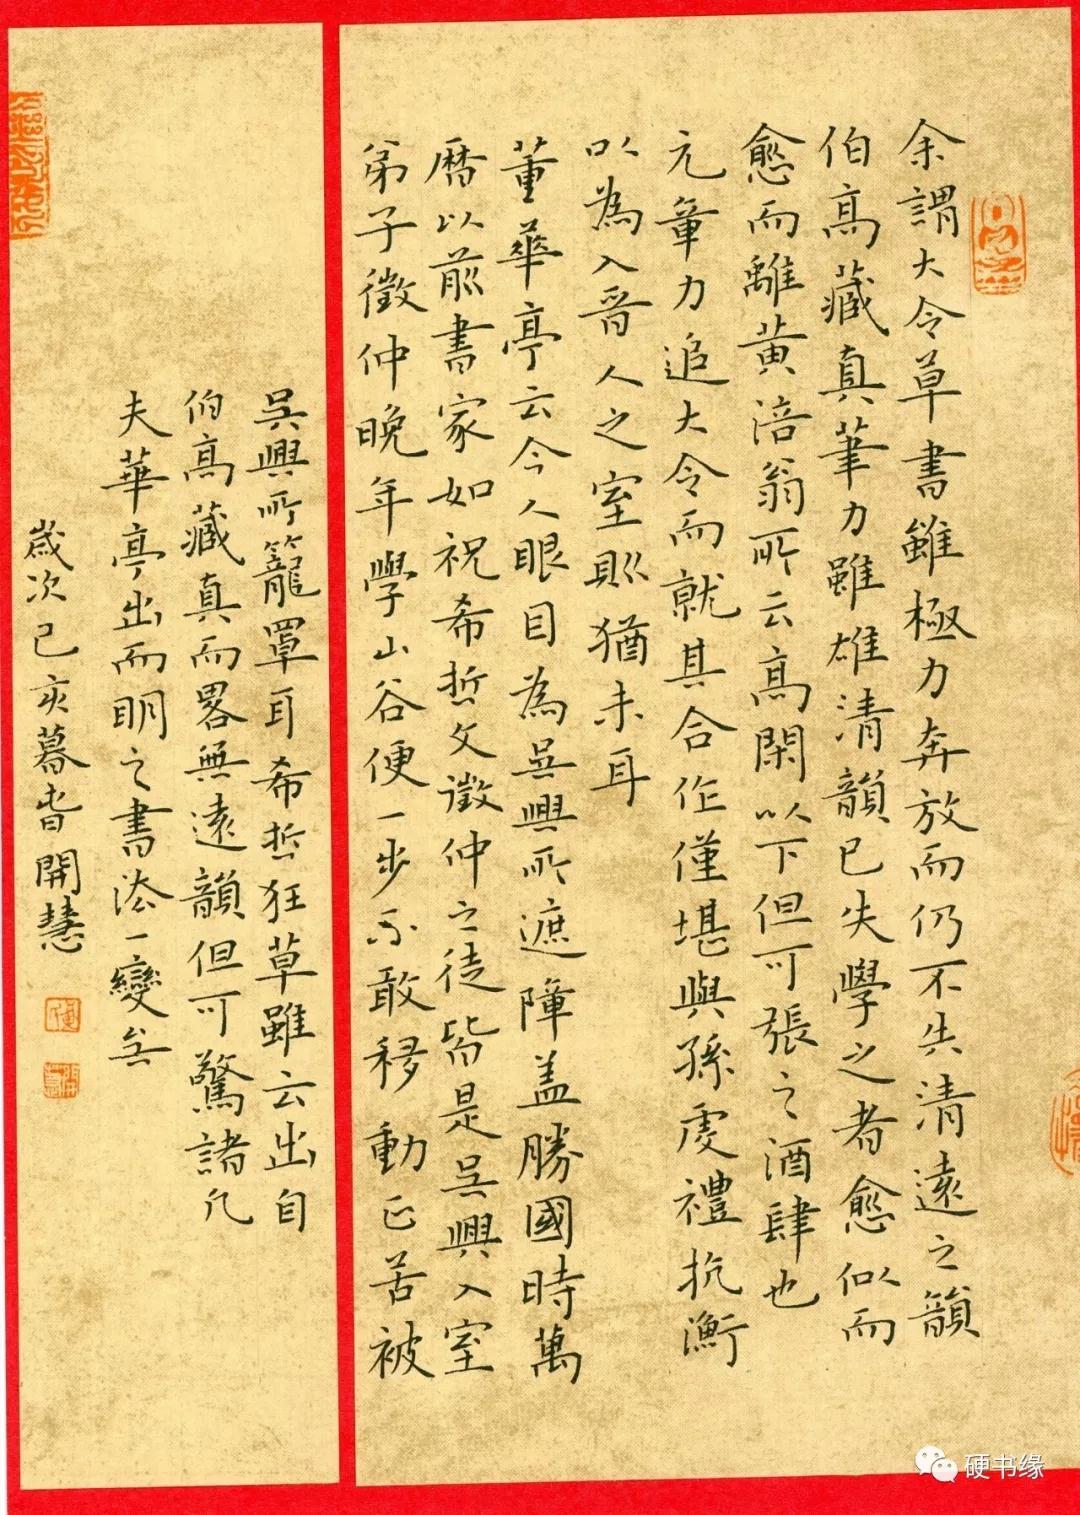 余謂大令草書雖極力奔放而仍不失清遠之韻
伯高藏真筆力雖雄清韻已失學之者愈似而
愈而離黃涪翁所云高閑以下但可張之酒肆也
元章力追大令而就其合作僅堪與孫虔禮抗衡
以為入晉人之室則猶未耳
董華亭云今人眼目為吳興所遮障盖勝國時萬
曆以前書家如祝希哲文徵仲之徒皆是吳興入室
弟子徵仲晚年學山谷便一步不敢移動正苦被
吳興所籠罩耳希哲狂草雖云出自
伯高藏真而畧無遠韻但可驚諸凡
夫華亭出而明之書法一變矣
歲次己亥暮春開慧
硬书缘